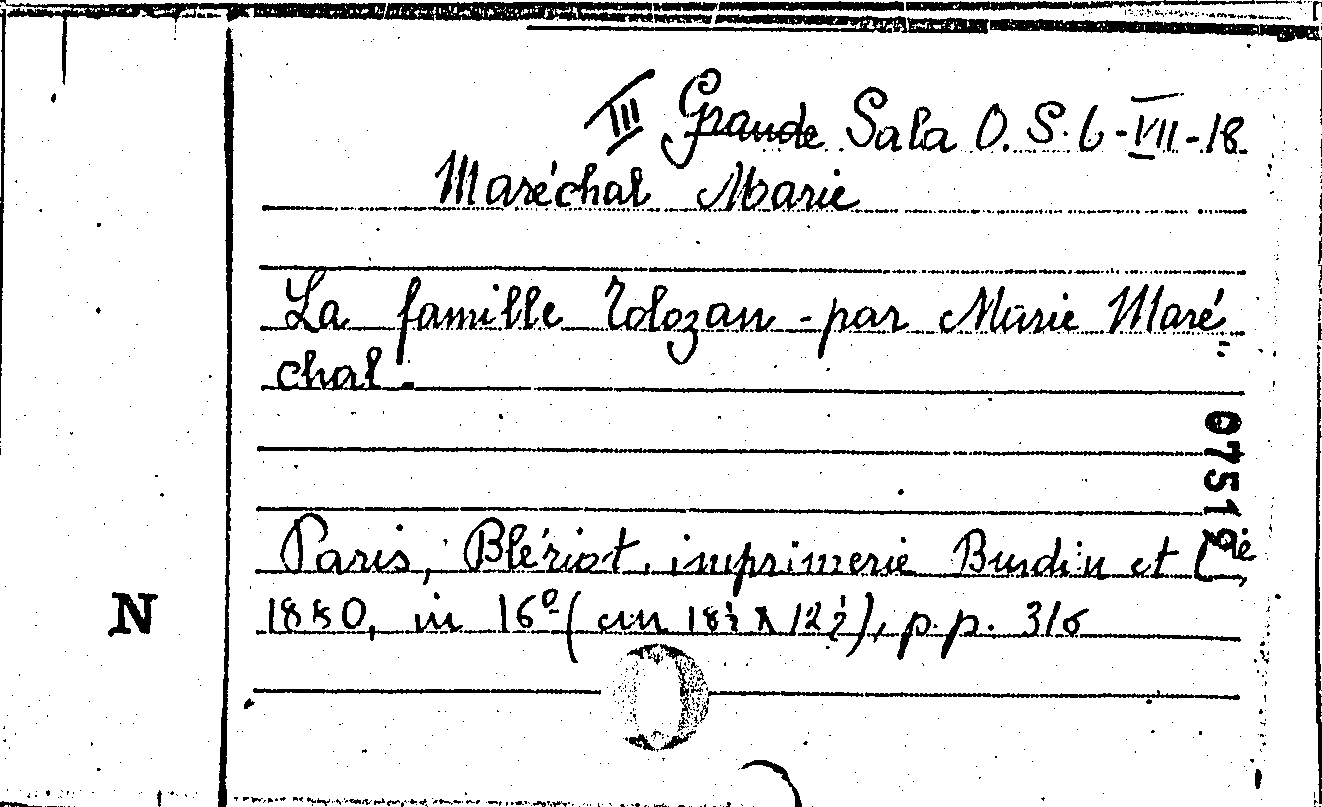 III Grande Sala O. S. 6-VII-18
Maréchal Marie
La famille Tolozan - par Marie Maré
chal.
07512
Paris, Blériot, imprimerie Burdin et Cie,
N
1880, in 16º (cm 18½ x 12½), p.p. 316